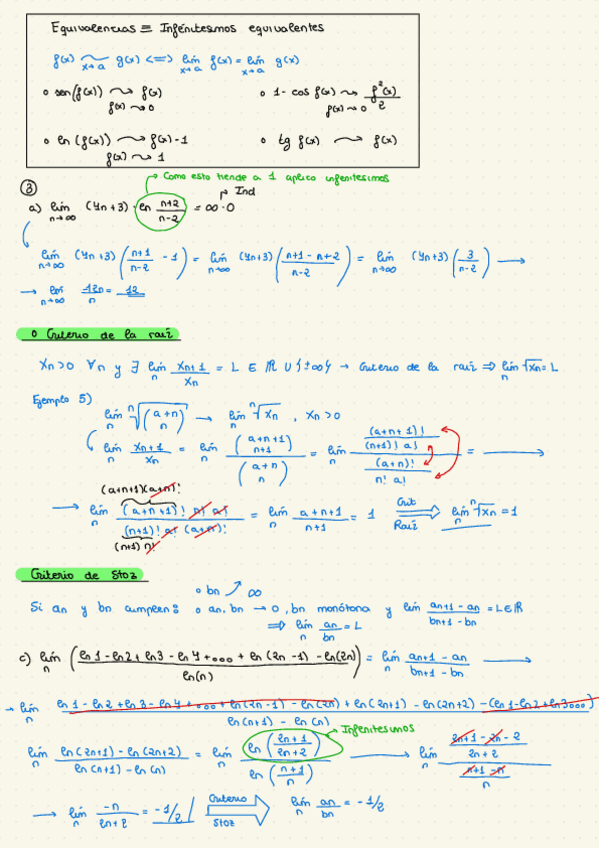 Equivalencias ≡ Infinitesimos equivalentes
f(x) ~ x→a g(x) <=> lim x→a f(x) = lim x→a g(x)
o sen(f(x)) ⤳ f(x) f(x)→0
o 1 - cos f(x) ⤳ f²(x)/2 f(x)→0
o ln (f(x)) ⤳ f(x)-1 f(x)→1
o tg f(x) ⤳ f(x)
Como esto tiende a 1 aplico infinitesimos
③
a) lim n→∞ (4n+3) · ln (n+2)/(n-2) = ∞·0 → Ind
lim n→∞ (4n+3) ((n+1)/(n-2) - 1) = lim n→∞ (4n+3) ((n+1-n+2)/(n-2)) = lim n→∞ (4n+3) (3/(n-2)) →
→ lim n→∞ 12n/n = 12
o Criterio de la raíz
Xn>0 ∀n y ∃ lim n Xn+1/Xn = L ∈ ℝ ∪ {±∞} → Criterio de la raíz ⇒ lim n ⁿ√Xn = L
Ejemplo 5)
lim n ⁿ√(a+n n) → lim n ⁿ√Xn , Xn>0
lim n Xn+1/Xn = lim n (a+n+1 n+1)/(a+n n) = lim n ((a+n+1)!/((n+1)! a!))/((a+n)!/(n! a!)) = →
(a+n+1)(a+n)!
→ lim n ((a+n+1)! n! a!)/((n+1)! a! (a+n)!) = lim n (a+n+1)/(n+1) = 1 ⇒ Crit Raíz lim n ⁿ√Xn = 1
(n+1) n!
Criterio de Stoz
o bn ↗ ∞
Si an y bn cumplen: o an, bn → 0, bn monótona y lim (an+1 - an)/(bn+1 - bn) = L∈ℝ
⇒ lim n an/bn = L
c) lim n ((ln 1 - ln 2 + ln 3 - ln 4 + ... + ln (2n-1) - ln(2n))/ln(n)) = lim n (an+1 - an)/(bn+1 - bn) →
→ lim n (ln 1 - ln 2 + ln 3 - ln 4 + ... + ln(2n-1) - ln(2n) + ln(2n+1) - ln(2n+2) - (ln 1 - ln 2 + ln 3 ...))/(ln(n+1) - ln(n))
→ Infinitesimos
lim n (ln(2n+1) - ln(2n+2))/(ln(n+1) - ln(n)) = lim n ln((2n+1)/(2n+2))/ln((n+1)/n) → lim n ((2n+1-2n-2)/(2n+2))/((n+1-n)/n)
→ lim n -n/(2n+2) = -1/2 Criterio Stoz ⇒ lim n an/bn = -1/2